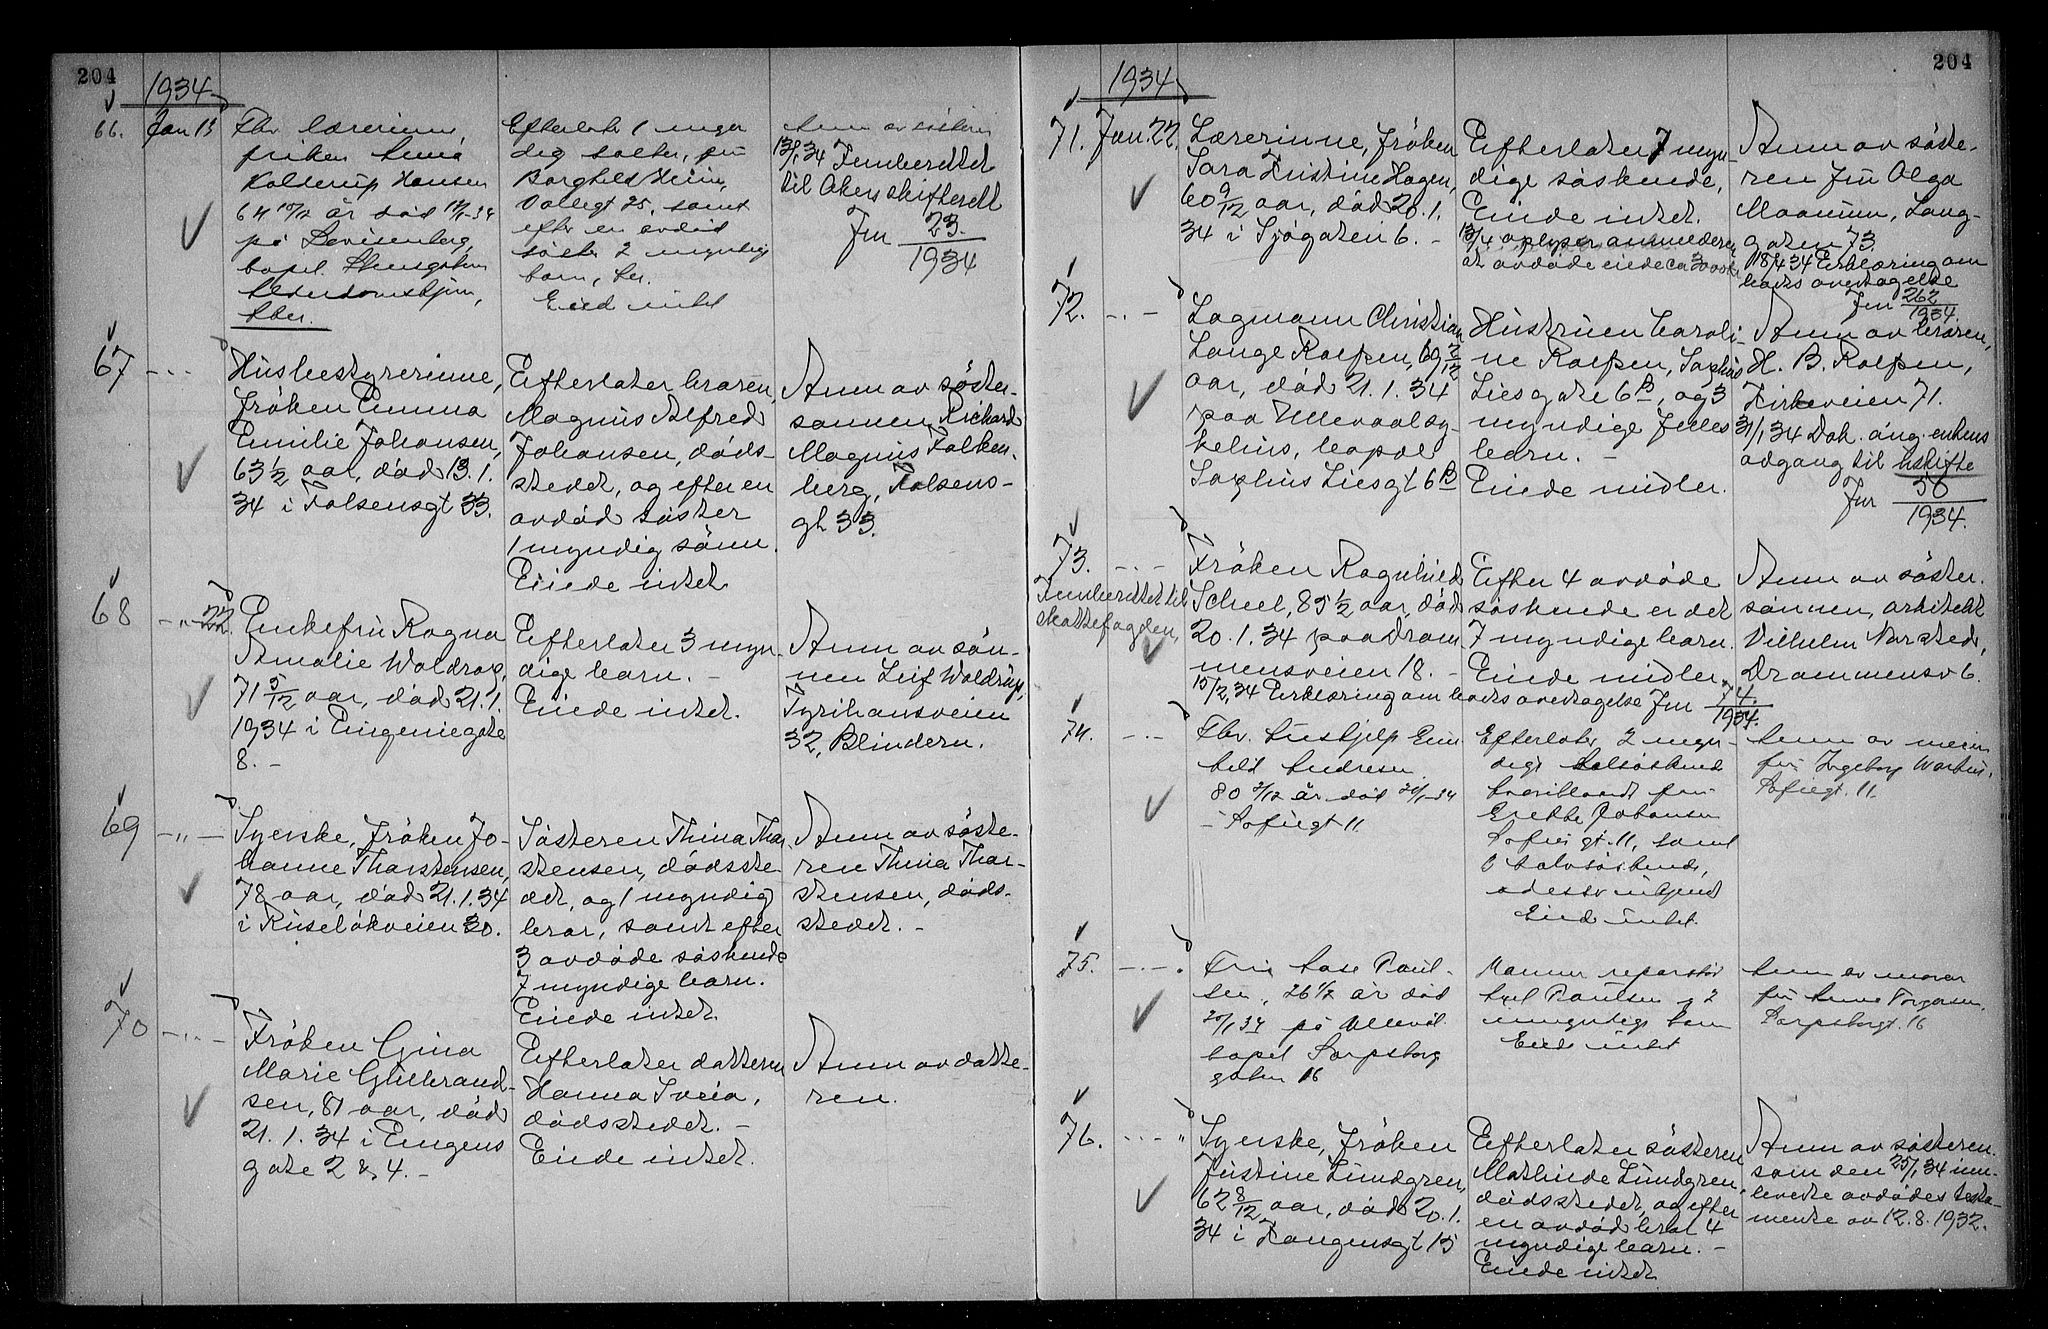 204
1934
66. Jan 13
Fhv. lærerinne,
frøken Anna
Kolderup Hansen
64 10/12 år død 12/1-34
på Lovisenberg,
bopel Stensgaten
Alderdomshjem,
Aker.
Efterlater 1 myn-
dig søster, fru
Borghild Heim,
Vallegt 25, samt
efter en avdød
søster 2 myndige
barn,
Eied intet
Anm av søsteren
13/1 34 Innberettet
til Aker skifterett
Jnr 23/1934
67 - " -
Husbestyrerinne,
frøken Emma
Emilie Johansen,
63 1/2 aar, død 13.1.
34 i Falsensgt 33.
Efterlater broren,
Magnus Alfred
Johansen, døds-
stedet, og efter en
avdød søster
1 myndig sønn.
Eiede intet
Anm av søster-
sønnen Richard
Magnus Falken-
berg, Falsens-
gt 33.
68 - " - 22.
Enkefru Ragna
Amalie Waldrop,
71 5/12 aar, død 21.1.
1934 i Eugeniegate
8. -
Efterlater 3 myn-
dige barn. -
Eiede intet.
Anm av søn-
nen Leif Waldrop,
Tyrihansveien
32, Blindern.
69 - " -
Syerske, frøken Jo-
hanne Thorstensen,
78 aar, død 21.1.34
i Ruseløkveien 30.
Søsteren Thina Thor-
stensen, dødsste-
det, og 1 myndig
bror, samt efter
3 avdøde søskende
7 myndige barn.
Eiede intet
Anm av søste-
ren Thina Thor-
stensen, døds-
stedet. -
70 - " -
Frøken Gina
Marie Gulbrand-
sen, 81 aar, død
21.1.34 i Eugens
gate 2 & 4. -
Efterlater datteren
Hanna Sveia,
dødsstedet. -
Eiede intet.
Anm av datte-
ren.
204
1934
71. Jan. 22.
Lærerinne, frøken
Sara Kristine Hagen,
60 9/12 aar, død 20.1.
34 i Sjøgaten 6. -
Efterlater 7 myn-
dige søskende,
Eiede intet.
13/4 oplyser anmelderen
at avdøde eiede ca 30 000 kr
Anm av søste-
ren fru Olga
Moanum, Lang-
gaten 73
18/4 34 Erklæring om
boets overtagelse
Jnr 262/1934.
72. - " -
Lagmann Christian
Lange Rolfsen, 69 2/12
aar, død 21.1.34
paa Ullevaal sy-
kehus, bopel
Sophus Liesgt 6B
Hustruen Caroli-
ne Rolfsen, Sophus
Liesgate 6B, og 3
myndige felles
barn. -
Eiede midler.
Anm av broren,
H. B. Rolfsen,
Kirkeveien 71.
31/1 34 Dok. ang. enkens
adgang til uskifte
Jnr 58/1934.
73. - " -
Innberettet til
skattefogden,
Frøken Ragnhild
Scheel, 85 1/2 aar, død
20.1.34 paa Dram-
mensveien 18. -
Efter 4 avdøde
søskende er det
7 myndige barn.
Eiede midler.
Anm av søster-
sønnen, arkitekt
Vilhelm Narsted,
Drammensv 6.
15/2 34 Erklæring om boets overtagelse Jnr 74/1934.
74. - " -
Fhv. hushjelp Gun-
hild Andresen
80 2/12 år død 20/1-34
- Sofiegt 11
Efterlater 2 myn-
dige helsøskend
hvoriblandt fru
Grethe Johansen
Sofies gt. 11, samt
halvsøskend,
adesse ukjent
Eied intet.
Anm av niesen
fru Ingeborg
Sofiegt. 11.
75. - " -
Fru Aase Paul-
sen, 26 1/2 år død
20/1 34 på Ullevål
bopel Sarpsborg
gaten 16
Mannen reparatør
Axel Paulsen og 2
umyndige barn
Eied intet
Anm av moren
fru Anna Torgersen,
Sarpsborggt. 16
76. - " -
Syerske, frøken
Justine Lundgren,
62 8/12 aar, død 20.1.
34 i Langensgt 15
Efterlater søsteren
Mathilde Lundgren,
dødsstedet, og efter
en avdød bror 4
myndige barn. -
Eiede intet
Anm av søsteren
som den 25/1 34 inn-
leverte avdødes testa-
mente av 12.8.1932.